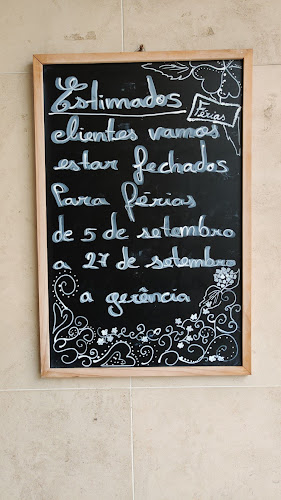 Estimados
Férias
clientes vamos
estar fechados
Para férias
de 5 de setembro
a 27 de setembro
a gerência